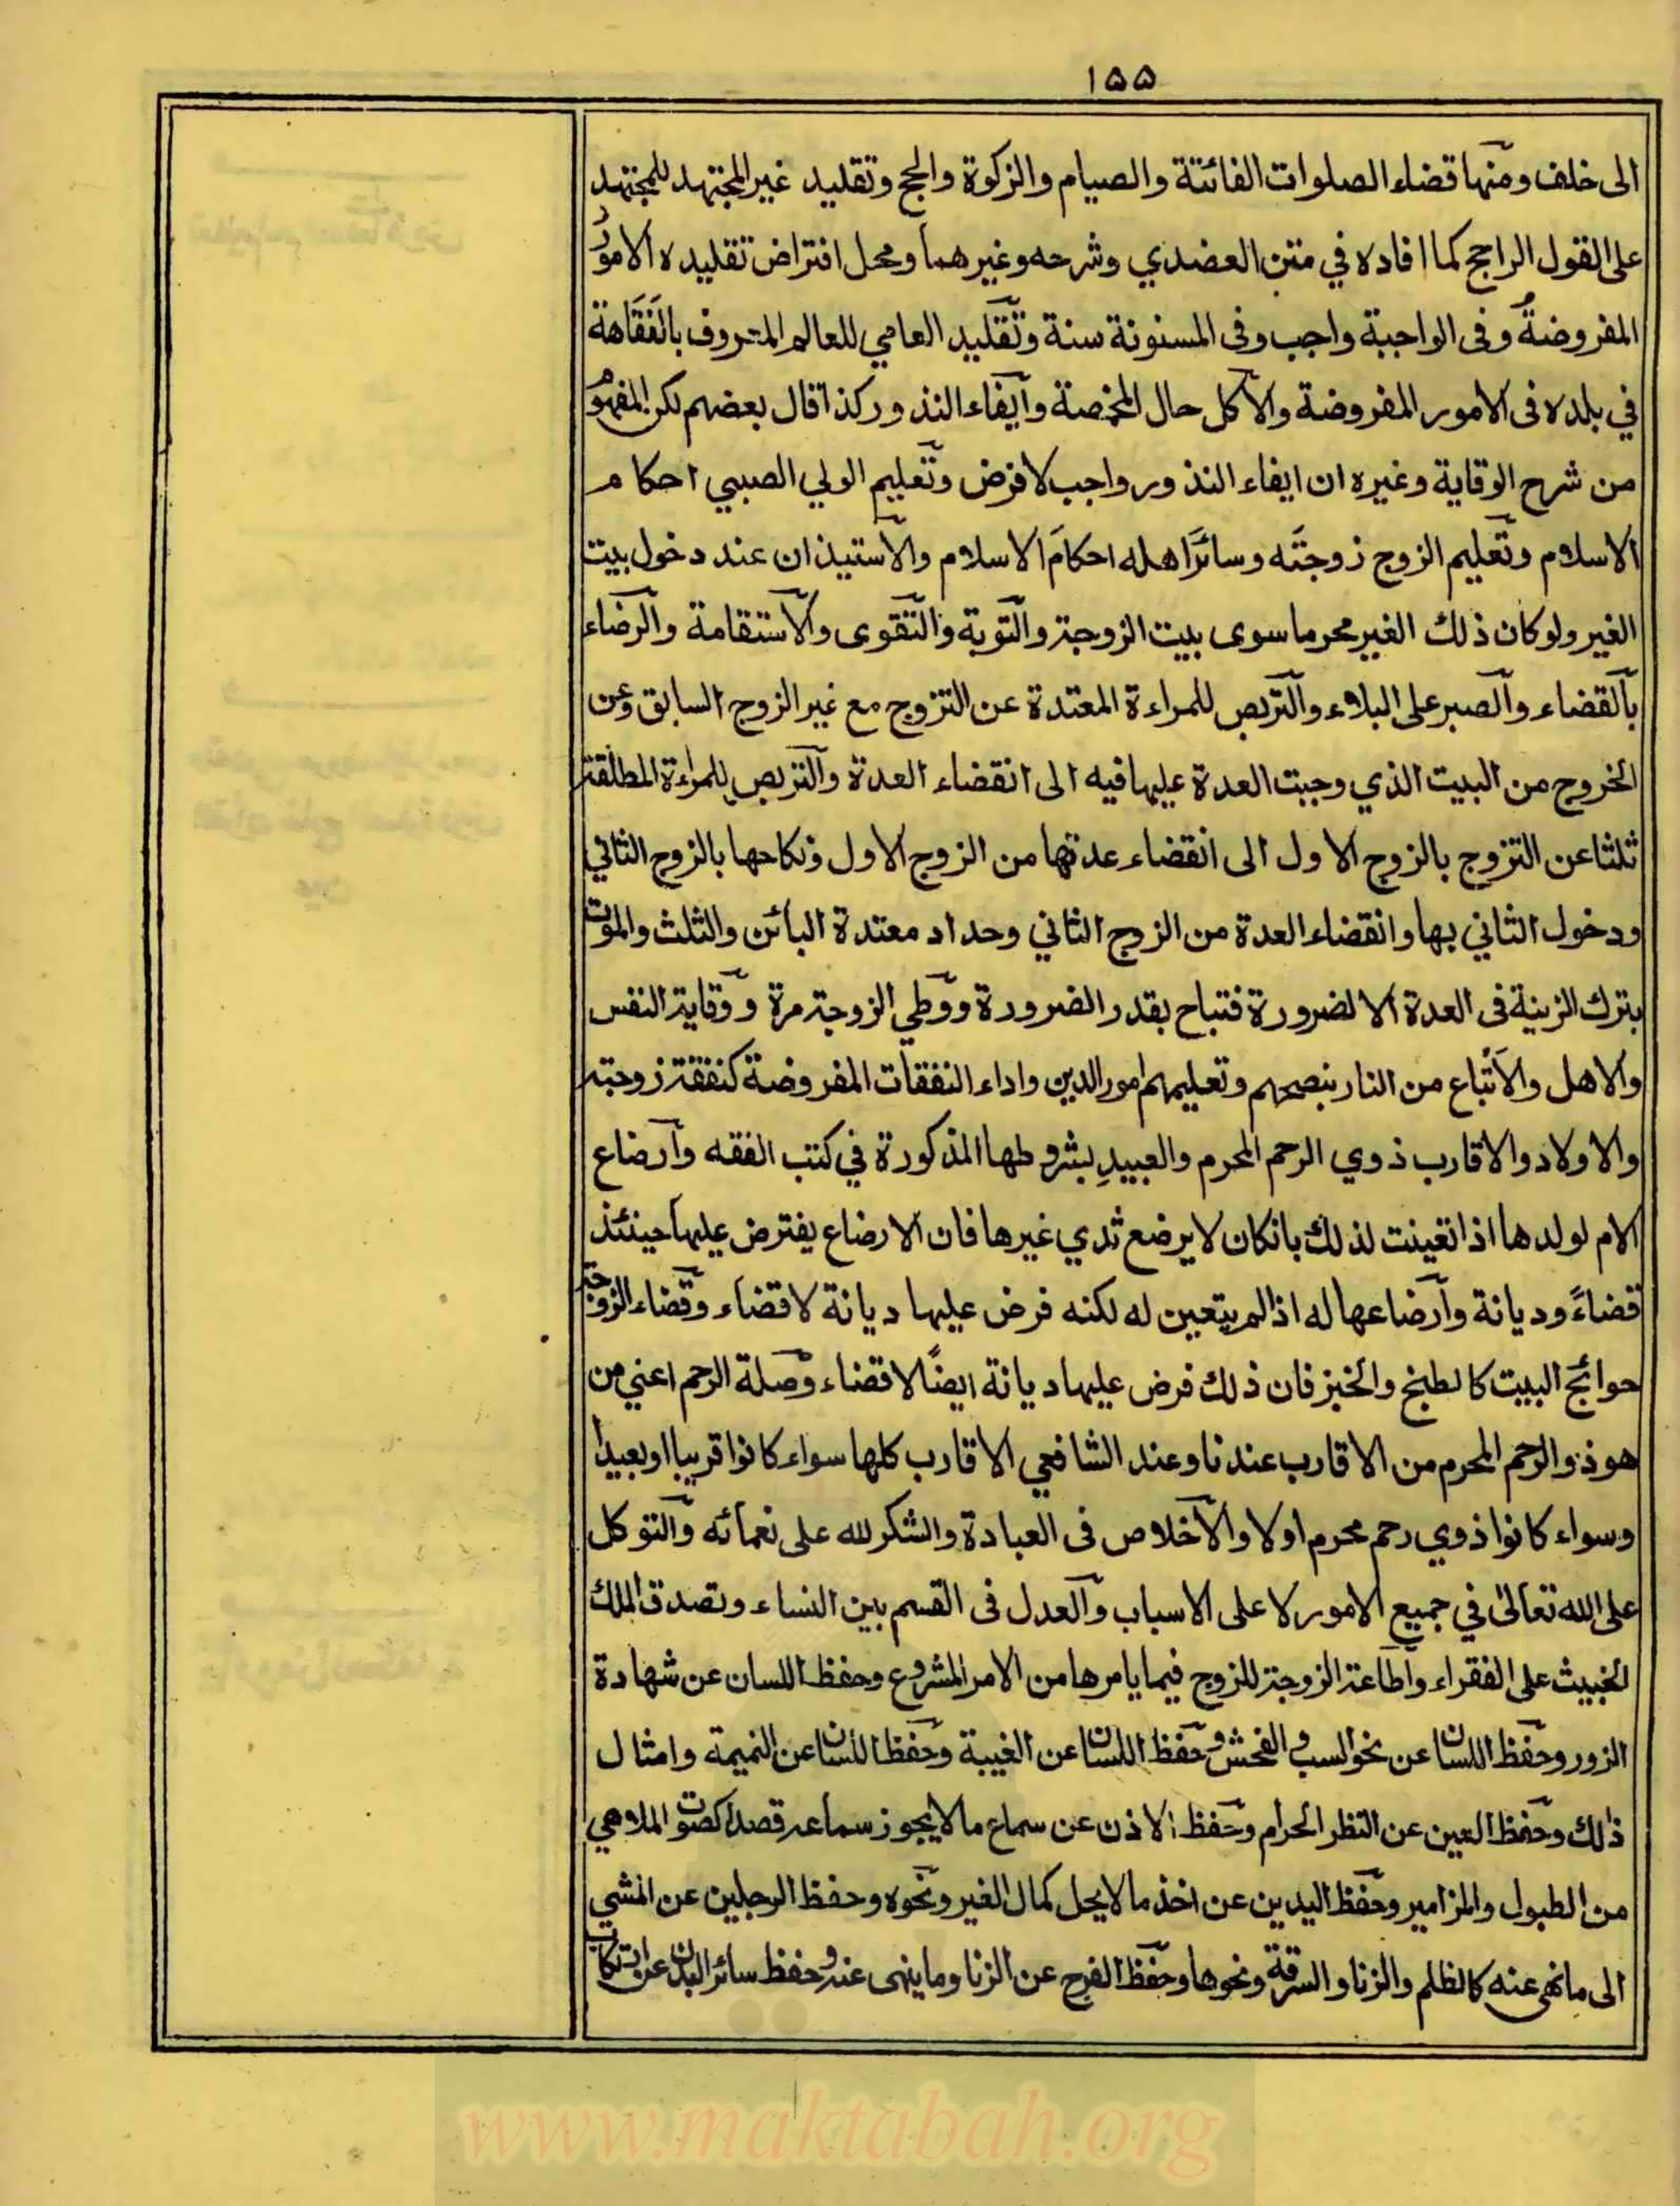 ١٥٥
الى خلف ومنها قضاء الصلوات الفائتة والصيام والزكوة والحج وتقليد غير المجتهد للمجتهد
على القول الراجح كما افاده في متن العضدي وشرحه وغيرهما ومحل افتراض تقليده الامورُ
المفروضةُ وفى الواجبة واجب وفى المسنونة سنة وتقليد العامي للعالم المعروف بالفَقَاهة
في بلده فى الامور المفروضة والاكل حال المخمصة وايفاء النذور كذا قال بعضهم لكن المفهوم
من شرح الوقاية وغيره ان ايفاء النذور واجب لا فرض وتعليم الولي الصبي احكام
الاسلام وتعليم الزوج زوجتَه وسائرَ اهله احكامَ الاسلام والاستيذان عند دخول بيت
الغير ولو كان ذلك الغير محرما سوى بيت الزوجة والتوبة والتقوى والاستقامة والرضاء
بالقضاء والصبر على البلاء والتربص للمراءة المعتدة عن التزوج مع غير الزوج السابق وعن
الخروج من البيت الذي وجبت العدة عليها فيه الى انقضاء العدة والتربص للمراءة المطلقة
ثلثا عن التزوج بالزوج الاول الى انقضاء عدتها من الزوج الاول ونكاحها بالزوج الثاني
ودخول الثاني بها وانقضاء العدة من الزوج الثاني وحداد معتدة البائن والثلث والموت
بترك الزينة فى العدة الا لضرورة فتباح بقدر الضرورة ووطي الزوجة مرة ووقاية النفس
والاهل والاَتْباع من النار بنصحهم وتعليمهم امور الدين واداء النفقات المفروضة كنفقة زوجته
والاولاد والاقارب ذوي الرحم المحرم والعبيدِ بشروطها المذكورة في كتب الفقه وارضاع
الام لولدها اذا تعينت لذلك بان كان لا يرضع ثدي غيرها فان الارضاع يفترض عليها حينئذ
قضاءً وديانة وارضاعها له اذا لم يتعين له لكنه فرض عليها ديانة لا قضاء وقضاء الزوجة
حوائج البيت كالطبخ والخبز فان ذلك فرض عليها ديانة ايضًا لا قضاء وصلة الرحم اعني من
هو ذو الرحم المحرم من الاقارب عندنا وعند الشافعي الاقارب كلها سواء كانوا قريبا او بعيدا
وسواء كانوا ذوي رحم محرم اولا والاخلاص فى العبادة والشكر لله على نعمائه والتوكل
على الله تعالى في جميع الامور لا على الاسباب والعدل فى القسم بين النساء وتصدق الملك
الخبيث على الفقراء واطاعة الزوجة للزوج فيما يامرها من الامر المشروع وحفظ اللسان عن شهادة
الزور وحفظ اللسان عن نحو السب والفحش وحفظ اللسان عن الغيبة وحفظ اللسان عن النميمة وامثال
ذلك وحفظ العين عن النظر الحرام وحفظ الاذن عن سماع ما لا يجوز سماعه قصدا كصوت الملاهي
من الطبول والمزامير وحفظ اليدين عن اخذ ما لا يحل كمال الغير ونحوه وحفظ الرجلين عن المشي
الى ما نهى عنه كالظلم والزنا والسرقة ونحوها وحفظ الفرج عن الزنا وما ينهى عنه وحفظ سائر البدن عن ارتكاب
www.maktabah.org